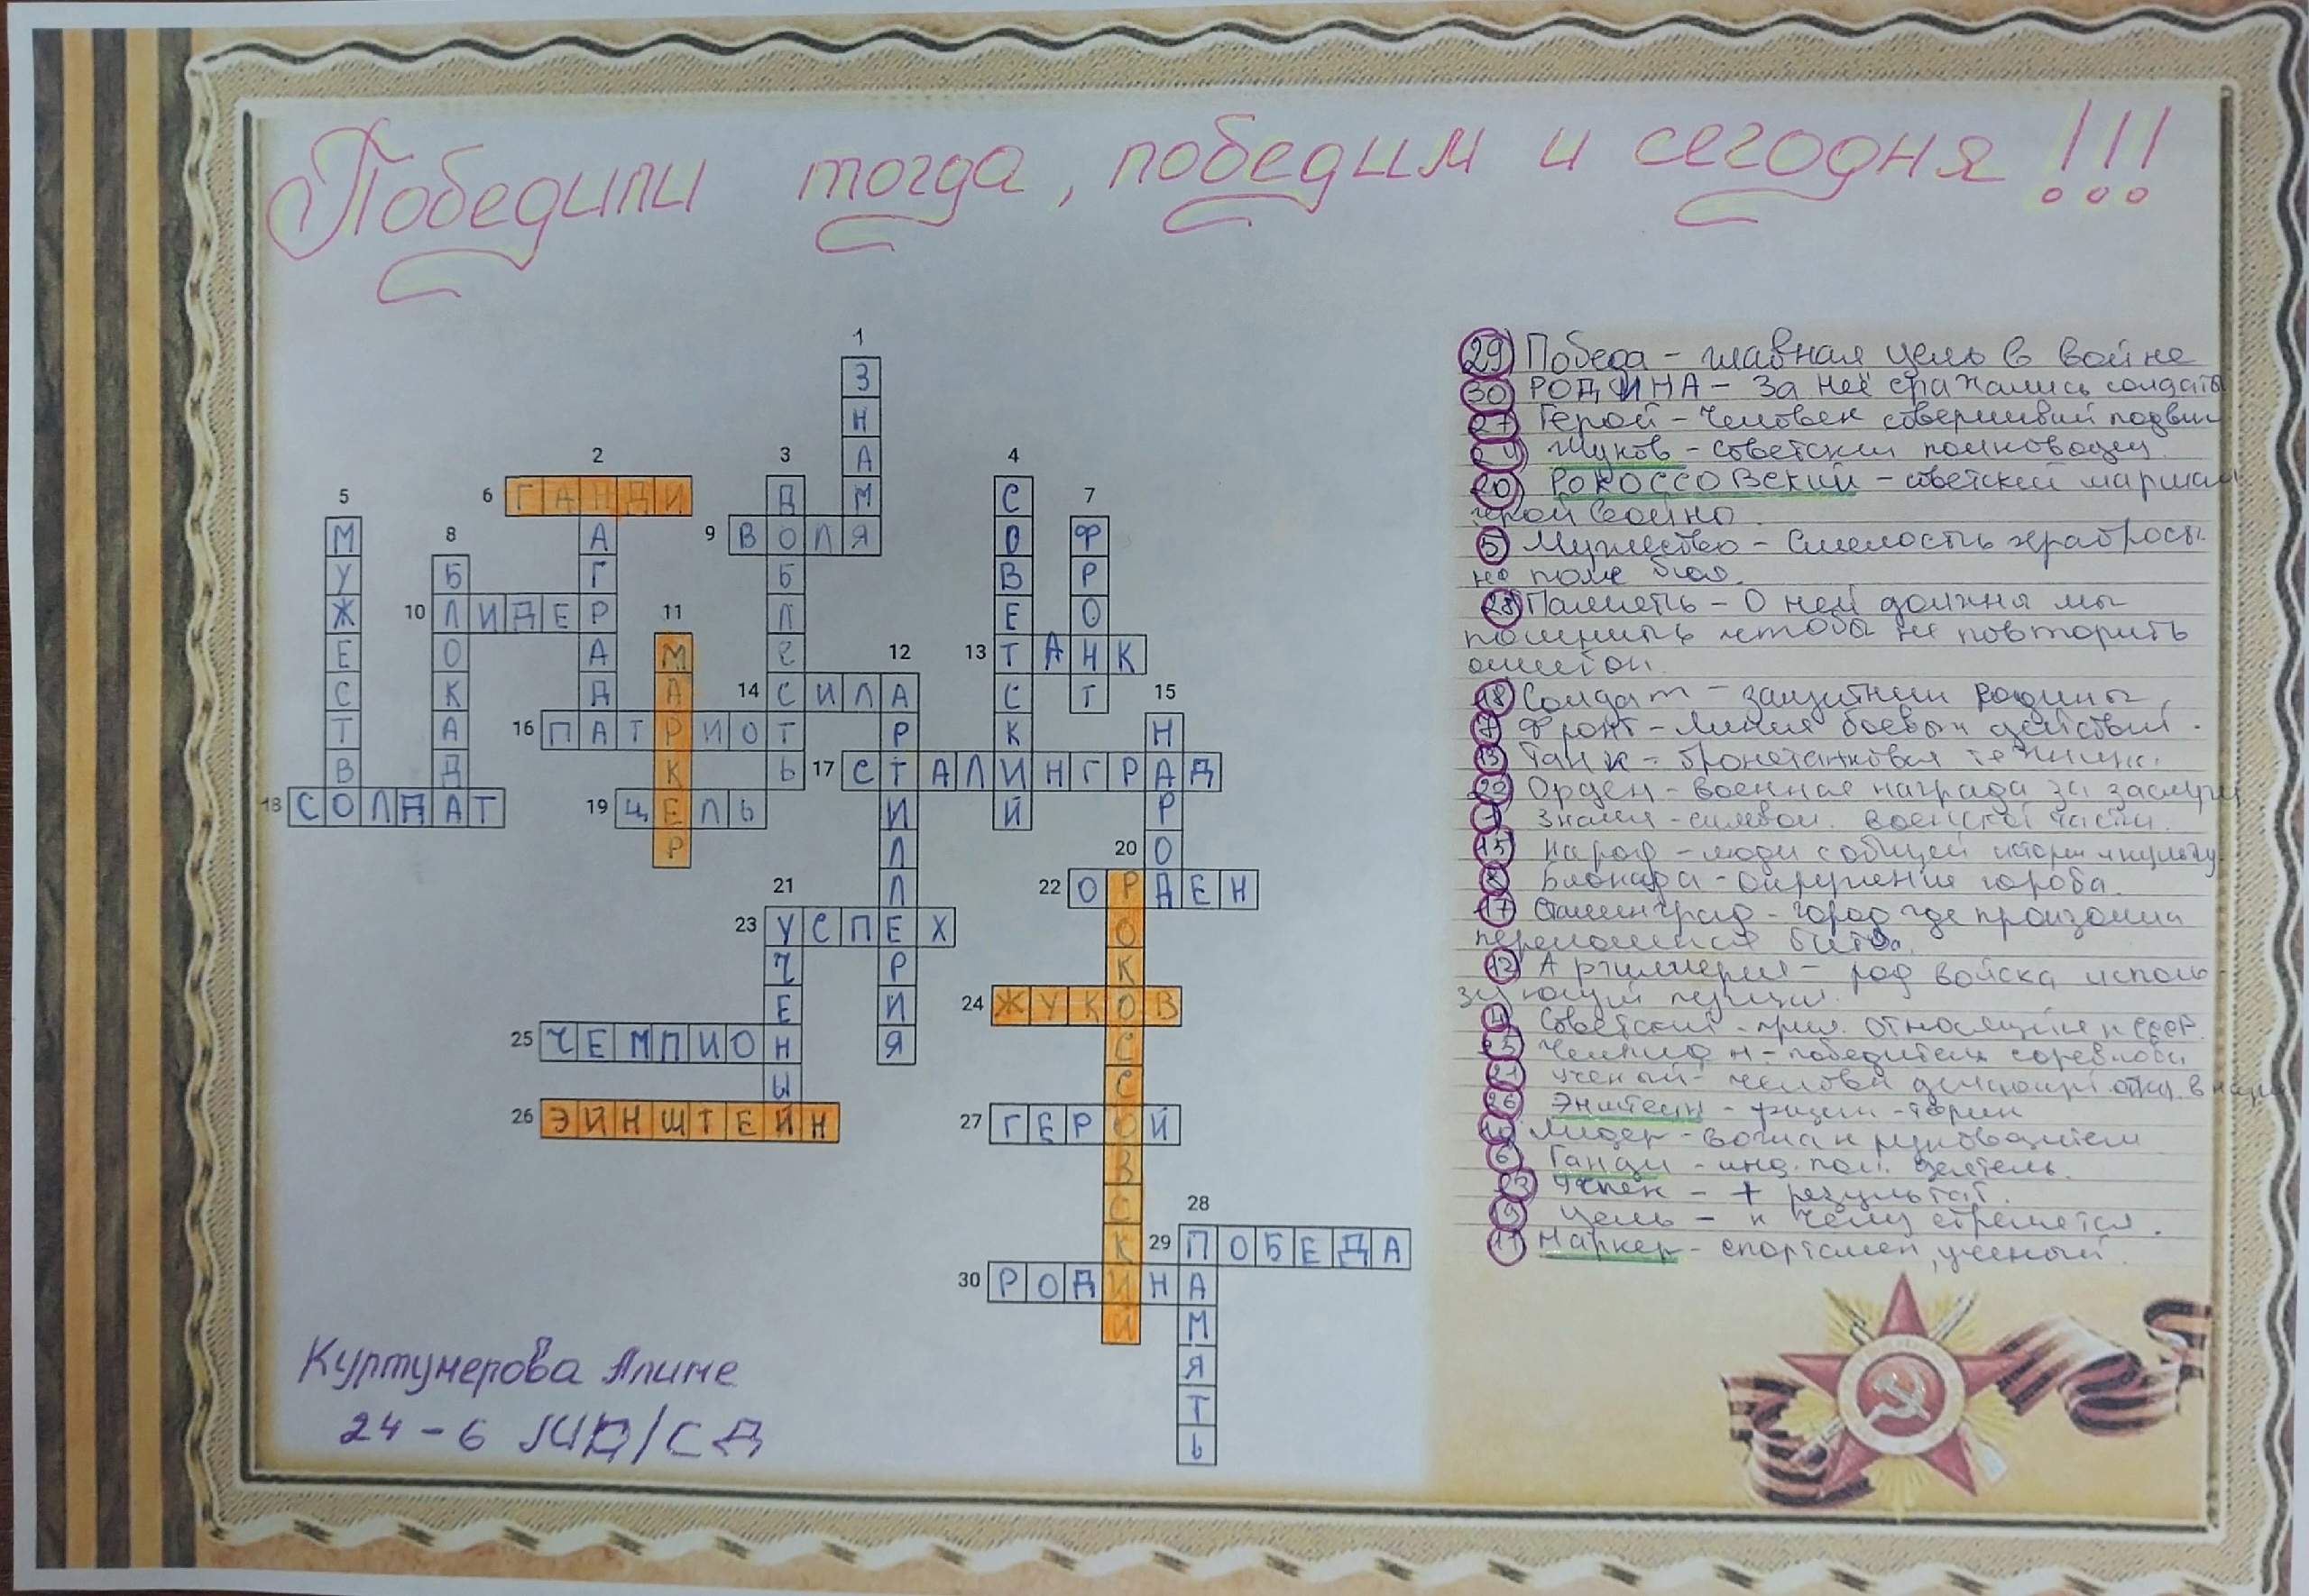 Победили тогда, победим и сегодня!!!
1 ЗНАМЯ
2 НАГРАДА
3 ДОБЛЕСТЬ
4 СОВЕТСКИЙ
5 МУЖЕСТВО
6 ГАНДИ
7 ФРОНТ
8 БЛОКАДА
9 ВОЛЯ
10 ЛИДЕР
11 МАРКЕР
12 АРТИЛЛЕРИЯ
13 ТАНК
14 СИЛА
15 НАРОД
16 ПАТРИОТ
17 СТАЛИНГРАД
18 СОЛДАТ
19 ЦЕЛЬ
20 РОКОССОВСКИЙ
21 УЧЕНЫЙ
22 ОРДЕН
23 УСПЕХ
24 ЖУКОВ
25 ЧЕМПИОН
26 ЭЙНШТЕЙН
27 ГЕРОЙ
28 ПАМЯТЬ
29 ПОБЕДА
30 РОДИНА
29 Победа - главная цель в войне
30 РОДИНА - За неё сражались солдаты
27 Герой - Человек совершивий подвиг
24 Жуков - советский полководец
20 Рокоссовский - советский маршал
герой войны
5 Мужество - Смелость храбрость
на поле боя.
28 Память - О ней должны мы
помнить чтобы не повторить
ошибок.
18 Солдат - защитник Родины
7 Фронт - Линия боевых действий.
13 Танк - бронетанковая техника.
22 Орден - военная награда за заслуги
1 Знамя - символ воинской части.
15 народ - люди с общей историей и культу
8 Блокада - окружение города.
17 Сталинград - город где произошла
переломная битва.
12 Артиллерия - род войска исполь-
зующий пушки.
4 Советский - прил. относящийся к СССР
25 Чемпион - победитель соревнова
21 учёный - человек делающий откр. в науке
26 Энштейн - физик - теорик
10 Лидер - вожак руководитель
6 Ганди - инд. пол. деятель.
23 Успех - + результат.
19 Цель - к чему стремятся.
11 Маркер - спортсмен, ученый
Куртумерова Алиме
24-6 ЛД/СД